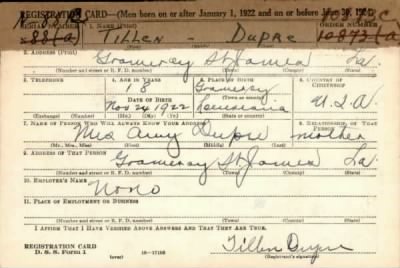 REGISTRATION CARD—(Men born on or after January 1, 1922 and on or before June 30, 1924)
ORDER NUMBER
Tillen - Dupre
2. ADDRESS (Print)
Gramercy St James La.
(Number and street or R. F. D. number) (Town) (County) (State)
3. TELEPHONE 4. AGE IN YEARS 5. PLACE OF BIRTH 6. COUNTRY OF CITIZENSHIP
18 Gramercy
DATE OF BIRTH (Town or county)
Nov 24 1922 Louisiana U.S.A
(Exchange) (Number) (Mo.) (Day) (Yr.) (State or country)
7. NAME OF PERSON WHO WILL ALWAYS KNOW YOUR ADDRESS 8. RELATIONSHIP OF THAT PERSON
Mrs Amy Dupre mother
(Mr., Mrs., Miss) (First) (Middle) (Last)
9. ADDRESS OF THAT PERSON
Gramercy St James La
(Number and street or R. F. D. number) (Town) (County) (State)
10. EMPLOYER'S NAME
None
11. PLACE OF EMPLOYMENT OR BUSINESS
(Number and street or R. F. D. number) (Town) (County) (State)
I AFFIRM THAT I HAVE VERIFIED ABOVE ANSWERS AND THAT THEY ARE TRUE.
REGISTRATION CARD
D. S. S. Form 1 (over) Tillen Dupre
(Registrant's signature)